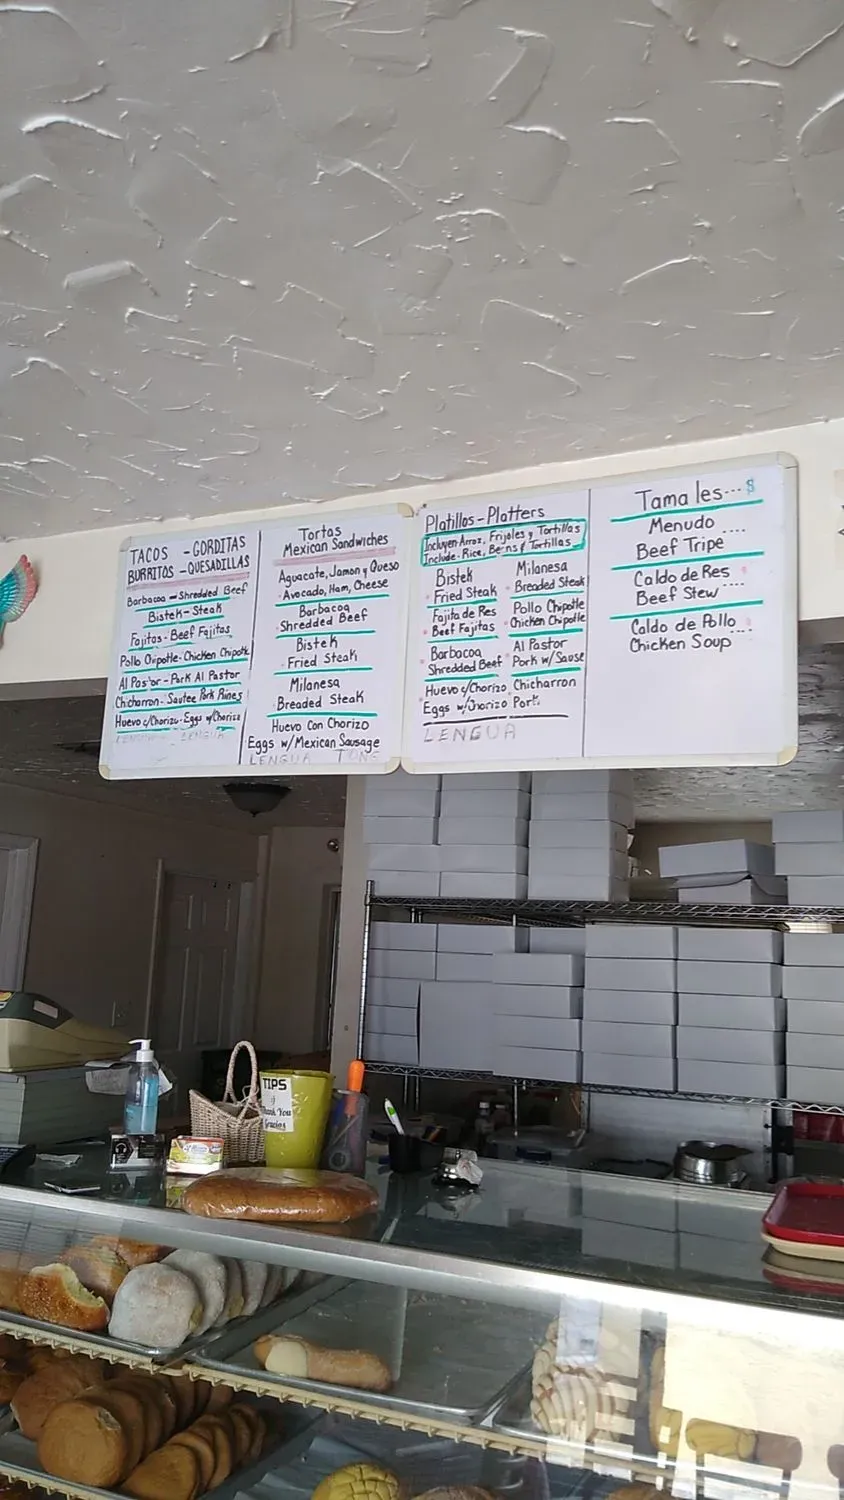 TACOS - GORDITAS
BURRITOS - QUESADILLAS
Barbacoa - Shredded Beef
Bistek - Steak
Fajitas - Beef Fajitas
Pollo Chipotle - Chicken Chipotle
Al Pastor - Pork Al Pastor
Chicharron - Sautee Pork Rines
Huevo c/Chorizo - Eggs w/Chorizo
LENGUA
Tortas
Mexican Sandwiches
Aguacate, Jamon y Queso
Avocado, Ham, Cheese
Barbacoa
Shredded Beef
Bistek
Fried Steak
Milanesa
Breaded Steak
Huevo Con Chorizo
Eggs w/Mexican Sausage
LENGUA TONG
Platillos - Platters
Incluyen Arroz, Frijoles y Tortillas
Include - Rice, Beans & Tortillas
Bistek
Fried Steak
Fajita de Res
Beef Fajitas
Barbacoa
Shredded Beef
Huevo c/Chorizo
Eggs w/Chorizo
LENGUA
Milanesa
Breaded Steak
Pollo Chipotle
Chicken Chipotle
Al Pastor
Pork w/Sause
Chicharron
Tamales --- $
Menudo ....
Beef Tripe
Caldo de Res ...
Beef Stew
Caldo de Pollo ....
Chicken Soup
TIPS
Thank You
Gracias